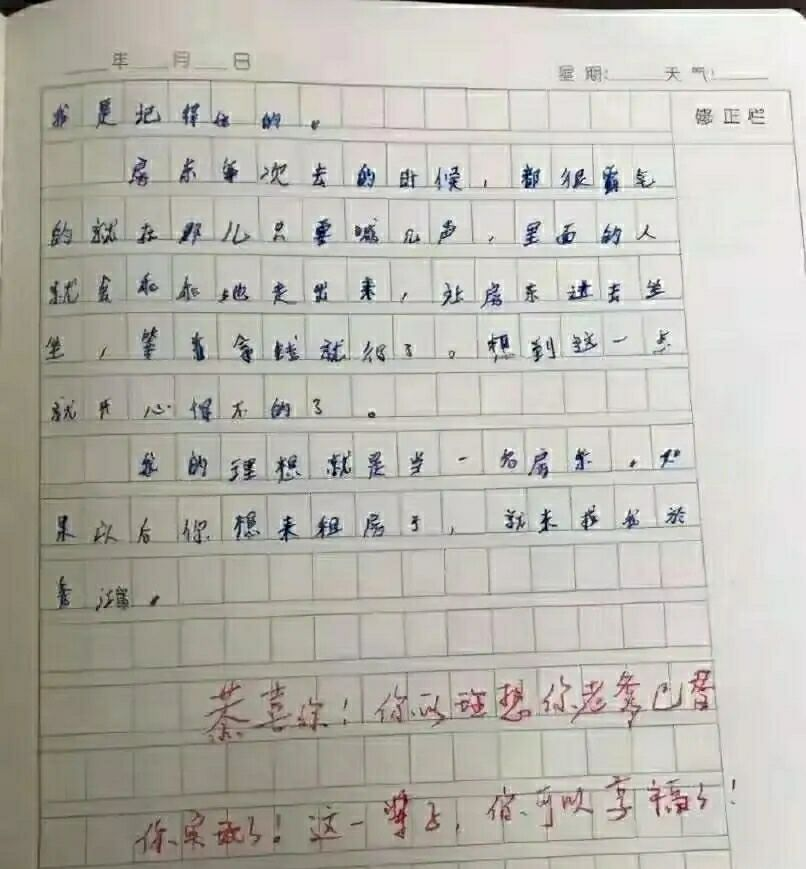 年 月 日
星期: 天气:
修正栏
我是记得住的。
房东每次去的时候,都很霸气
的就在那儿只要喊几声,里面的人
就会乖乖地走出来,让房东进去坐
坐,等着拿钱就得了。想到这一点
就开心得不的了。
我的理想就是当一名房东。如
果以后你想来租房子,就来找
恭喜你!你的理想你老爹已替
你实现了!这一辈子,你可以享福了!